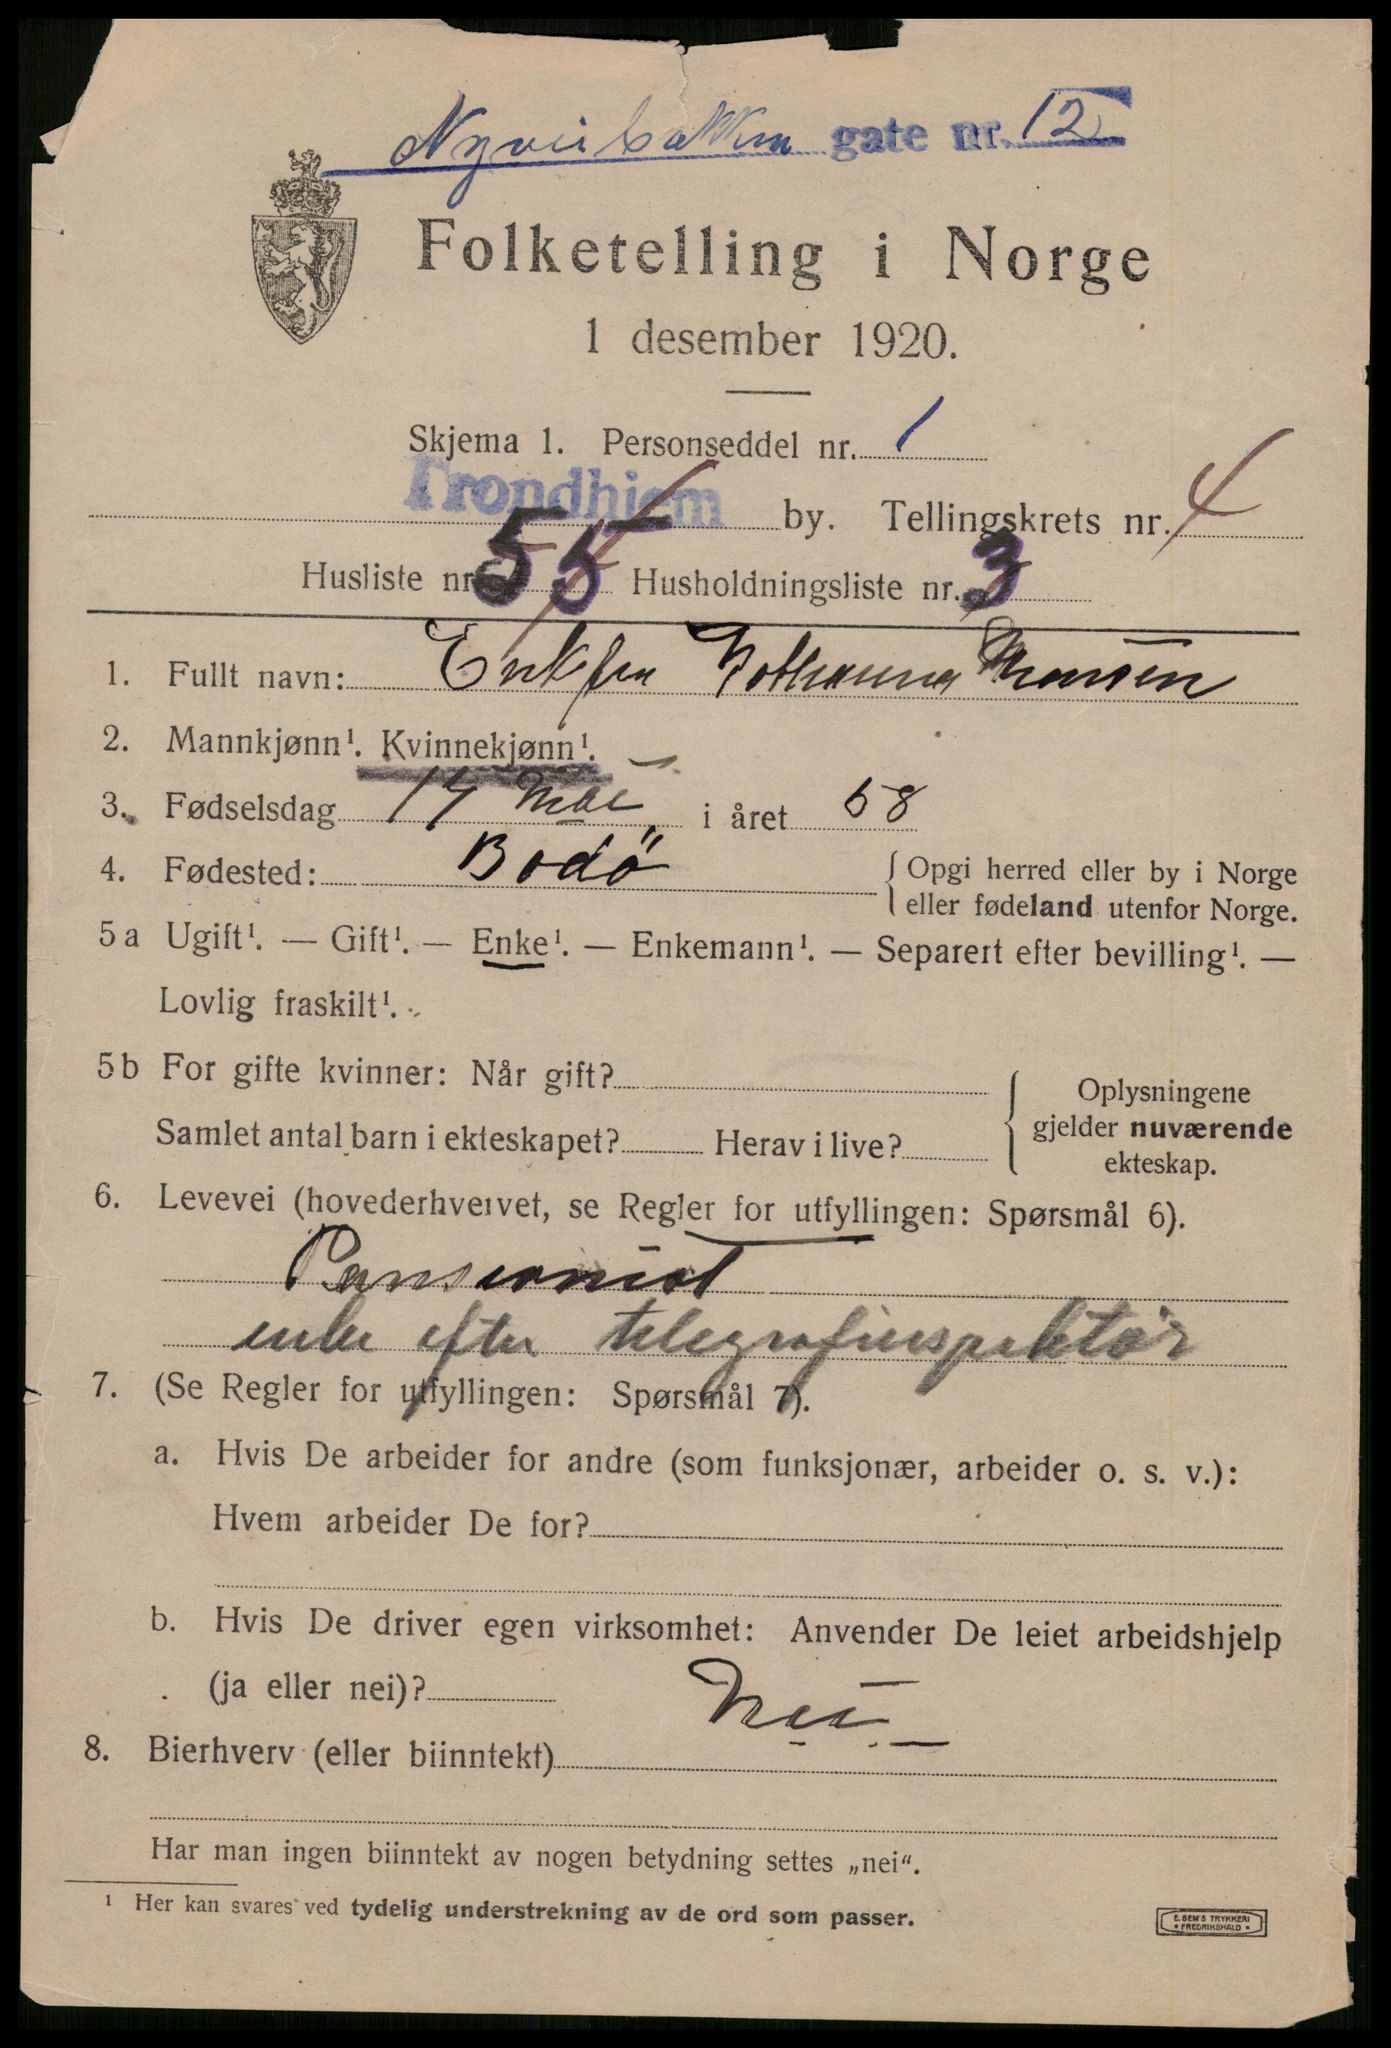 Nyveibakken gate nr. 12
Folketelling i Norge
1 desember 1920.
Skjema 1. Personseddel nr. 1
Trondhjem by. Tellingskrets nr. 4
Husliste nr. 55 Husholdningsliste nr. 3
1. Fullt navn: Enkefru Hansen
2. Mannkjønn¹. Kvinnekjønn¹.
3. Fødselsdag 14 Mai i året 58
4. Fødested: Bodø
{ Opgi herred eller by i Norge
eller fødeland utenfor Norge.
5a Ugift¹. — Gift¹. — Enke¹. — Enkemann¹. — Separert efter bevilling¹. —
Lovlig fraskilt¹.
5b For gifte kvinner: Når gift?
Samlet antal barn i ekteskapet? Herav i live?
{ Oplysningene
gjelder nuværende
ekteskap.
6. Levevei (hovederhvervet, se Regler for utfyllingen: Spørsmål 6).
Pensionist
enke efter telegrafinspektør
7. (Se Regler for utfyllingen: Spørsmål 7).
a. Hvis De arbeider for andre (som funksjonær, arbeider o. s. v.):
Hvem arbeider De for?
b. Hvis De driver egen virksomhet: Anvender De leiet arbeidshjelp
(ja eller nei)?
Nei
8. Bierhverv (eller biinntekt)
Har man ingen biinntekt av nogen betydning settes „nei“.
¹ Her kan svares ved tydelig understrekning av de ord som passer.
E. SEM'S TRYKKERI
* FREDRIKSHALD *